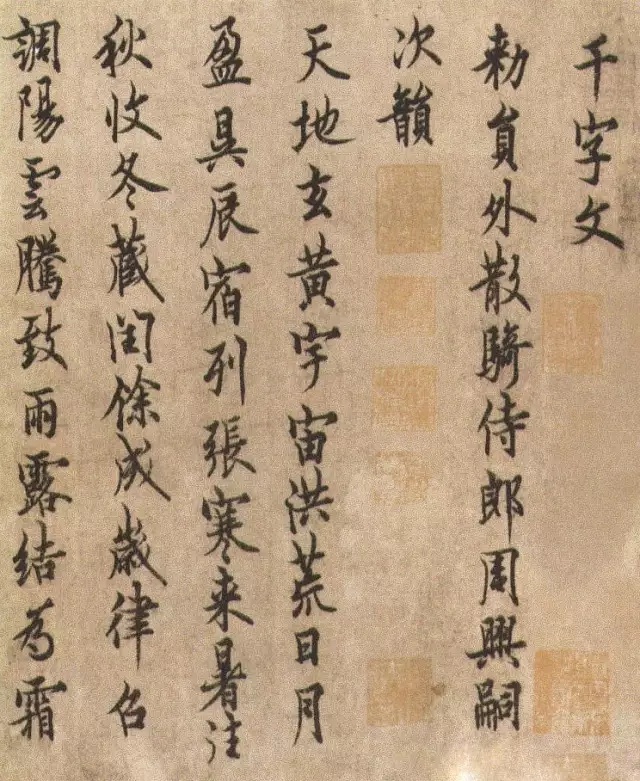 千字文
勅員外散騎侍郎周興嗣
次韻
天地玄黃宇宙洪荒日月
盈昃辰宿列張寒来暑往
秋收冬藏閏餘成歲律召
調陽雲騰致雨露結為霜